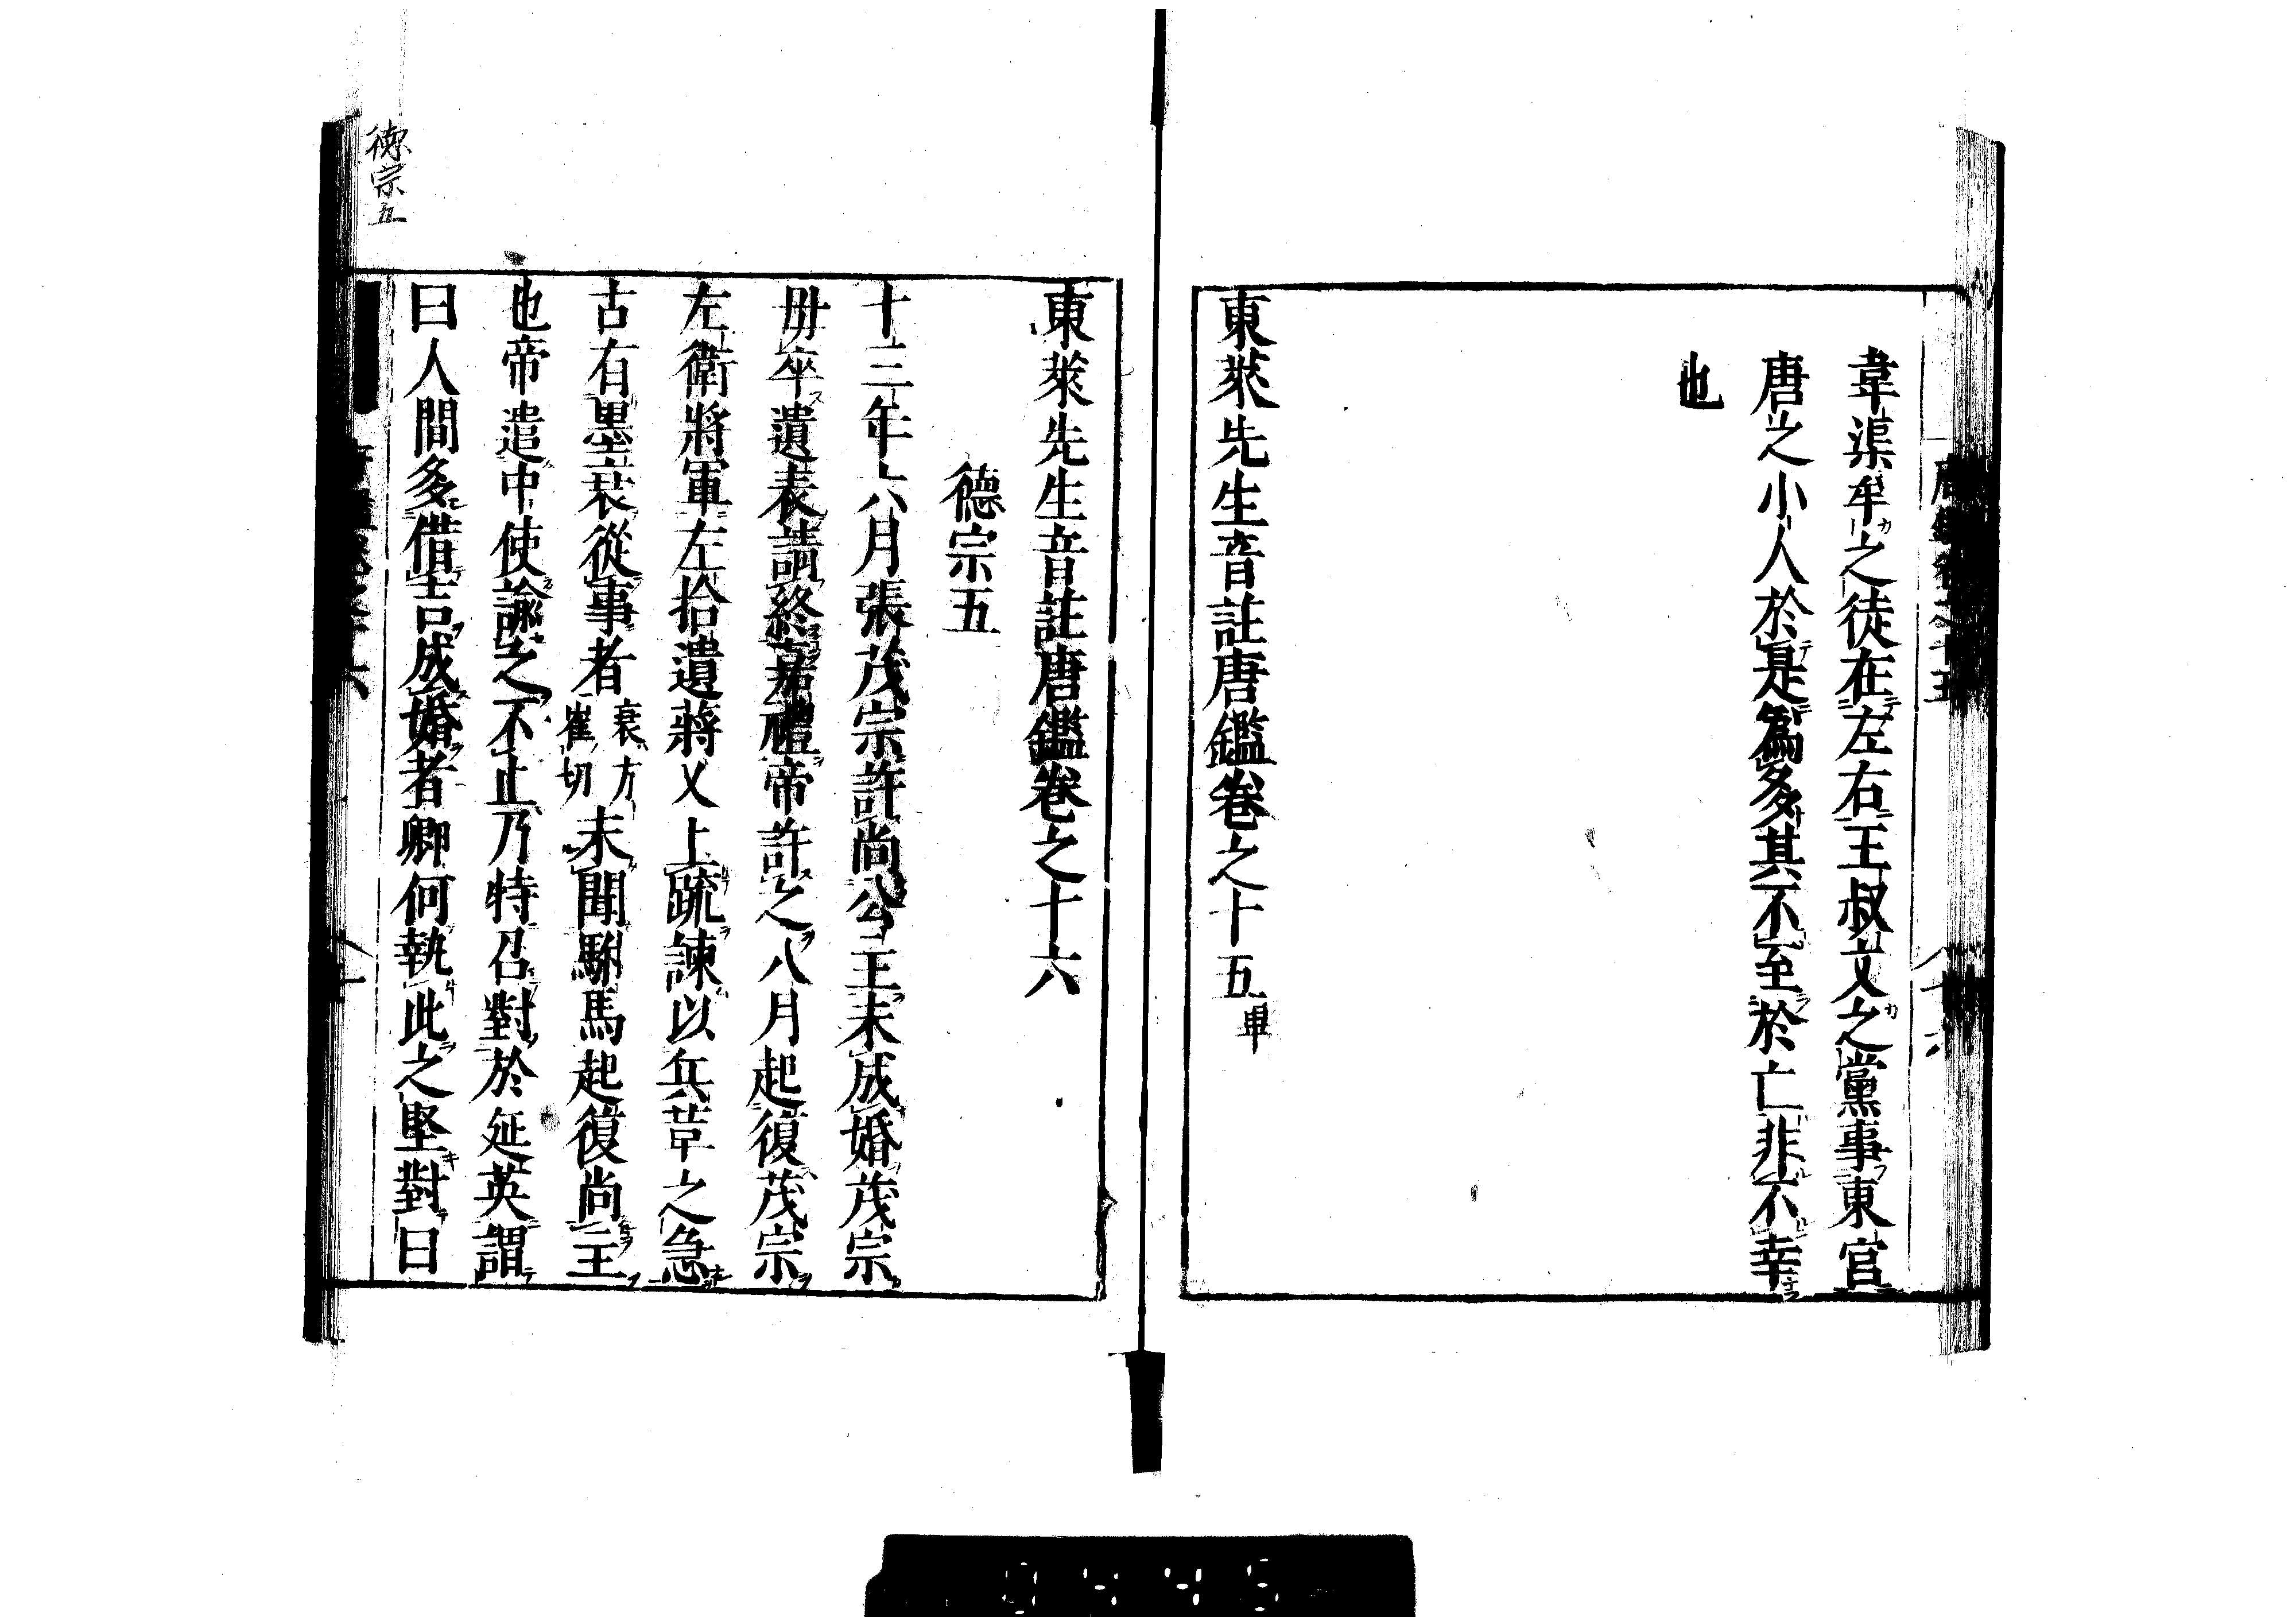 韋渠牟之徒在左右王叔文之黨事東宮
唐之小人於是爲多其不至於亡非不幸
也
東萊先生音註唐鑑卷之十五畢
東萊先生音註唐鑑卷之十六
德宗五
十三年六月張茂宗許尚公主未成婚茂宗
毋卒遺表請終嘉禮帝許之八月起復茂宗
左衛將軍左拾遺蔣乂上疏諫以兵革之急
古有墨衰從事者衰方崔切未聞駙馬起復尚主
也帝遣中使諭之不止乃特召對於延英謂
曰人間多借吉成婚者卿何執此之堅對曰
德宗五